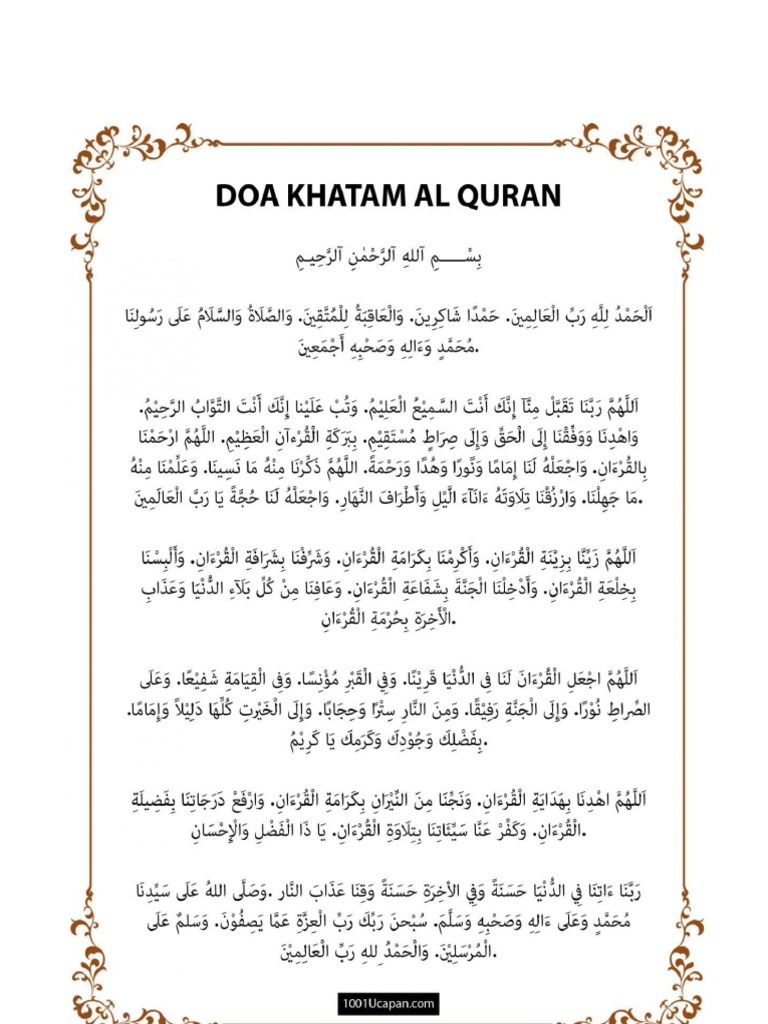 DOA KHATAM AL QURAN
بِسْـــــمِ اۤللهِ اۤلرَّحْمٰنِ اۤلرَّحِيمِ
اَلْحَمْدُ لِلَّهِ رَبِّ الْعَالِمِينَ. حَمْدًا شَاكِرِينَ. وَالْعَاقِبَةُ لِلْمُتَّقِينَ. وَالصَّلَاةُ وَالسَّلَامُ عَلَى رَسُولِنَا
مُحَمَّدٍ وَءَالِهِ وَصَحْبِهِ أَجْمَعِينَ.
اَللَّهُمَّ رَبَّنَا تَقَبَّلْ مِنَّآ إِنَّكَ أَنْتَ السَّمِيْعُ الْعَلِيْمُ. وَتُبْ عَلَيْنا إِنَّكَ أَنْتَ التَّوَّابُ الرَّحِيْمُ.
وَاهْدِنَا وَوَفِّقْنَا إِلَى الْحَقِّ وَإِلَى صِرَاطٍ مُسْتَقِيْمٍ. بِبَرَكَةِ الْقُرْءآنِ الْعَظِيْمِ. اللَّهُمَّ ارْحَمْنَا
بِالقُرْءَانِ. وَاجْعَلْهُ لَنَا إِمَامًا وَنُّورًا وَهُدًا وَرَحْمَةً. اللَّهُمَّ ذَكِّرْنَا مِنْهُ مَا نَسِينَا. وَعَلِّمْنَا مِنْهُ
مَا جَهِلْنَا. وَارْزُقْنَا تِلَاوَتَهُ ءَانَآءَ الَّيْلِ وَأَطْرَافَ النَّهَارِ. وَاجْعَلْهُ لَنَا حُجَّةً يَا رَبَّ الْعَالَمِينَ.
اَللَّهُمَّ زَيِّنَّا بِزِيْنَةِ الْقُرْءَانِ. وَأَكْرِمْنَا بِكَرَامَةِ الْقُرْءَانِ. وَشَرِّفْنَا بِشَرَافَةِ الْقُرْءَانِ. وَأَلْبِسْنَا
بِخِلْعَةِ الْقُرْءَانِ. وَأَدْخِلْنَا الْجَنَّةَ بِشَفَاعَةِ الْقُرْءَانِ. وَعَافِنَا مِنْ كُلِّ بَلَآءِ الدُّنْيَا وَعَذَابِ
الْأَخِرَةِ بِحُرْمَةِ الْقُرْءَانِ.
اَللَّهُمَّ اجْعَلِ الْقُرْءَانَ لَنَا فِى الدُّنْيَا قَرِيْنًا. وَفِي الْقَبْرِ مُؤْنِسًا. وَفِى الْقِيَامَةِ شَفِيْعًا. وَعَلَى
الصِّراطِ نُوْرًا. وَإِلَى الْجَنَّةِ رَفِيْقًا. وَمِنَ النَّارِ سِتْرًا وَحِجَابًا. وَإِلَى الْخَيْرتِ كُلِّهَا دَلِيْلاً وَإِمَامًا.
بِفَضْلِكَ وَجُوْدِكَ وَكَرَمِكَ يَا كَرِيْمُ.
اَللَّهُمَّ اهْدِنَا بِهَدَايَةِ الْقُرْءَانِ. وَنَجِّنَا مِنَ النِّيْرَانِ بِكَرَامَةِ الْقُرْءَانِ. وَارْفَعْ دَرَجَاتِنَا بِفَضِيلَةِ
الْقُرْءَانِ. وَكَفِّرْ عَنَّا سَيِّئَاتِنَا بِتِلَاوَةِ الْقُرْءَانِ. يَا ذَا الْفَضْلِ وَالْإِحْسَانِ.
رَبَّنَا ءَاتِنَا فِي الدُّنْيَا حَسَنَةً وَفِي الأخِرَةِ حَسَنَةً وَقِنَا عَذَابَ النَّار .وَصَلَّى اللهُ عَلَى سَيِّدِنَا
مُحَمَّدٍ وَعَلَى ءَالِهِ وَصَحْبِهِ وَسَلَّمَ. سُبْحنَ رَبِّكَ رَبِّ الْعِزَّةِ عَمَّا يَصِفُوْنَ. وَسَلمٌ عَلَى
الْمُرْسَلِيْنَ. وَالْحَمْدُ لِلهِ رَبِّ الْعَالِمِيْنَ.
1001Ucapan.com